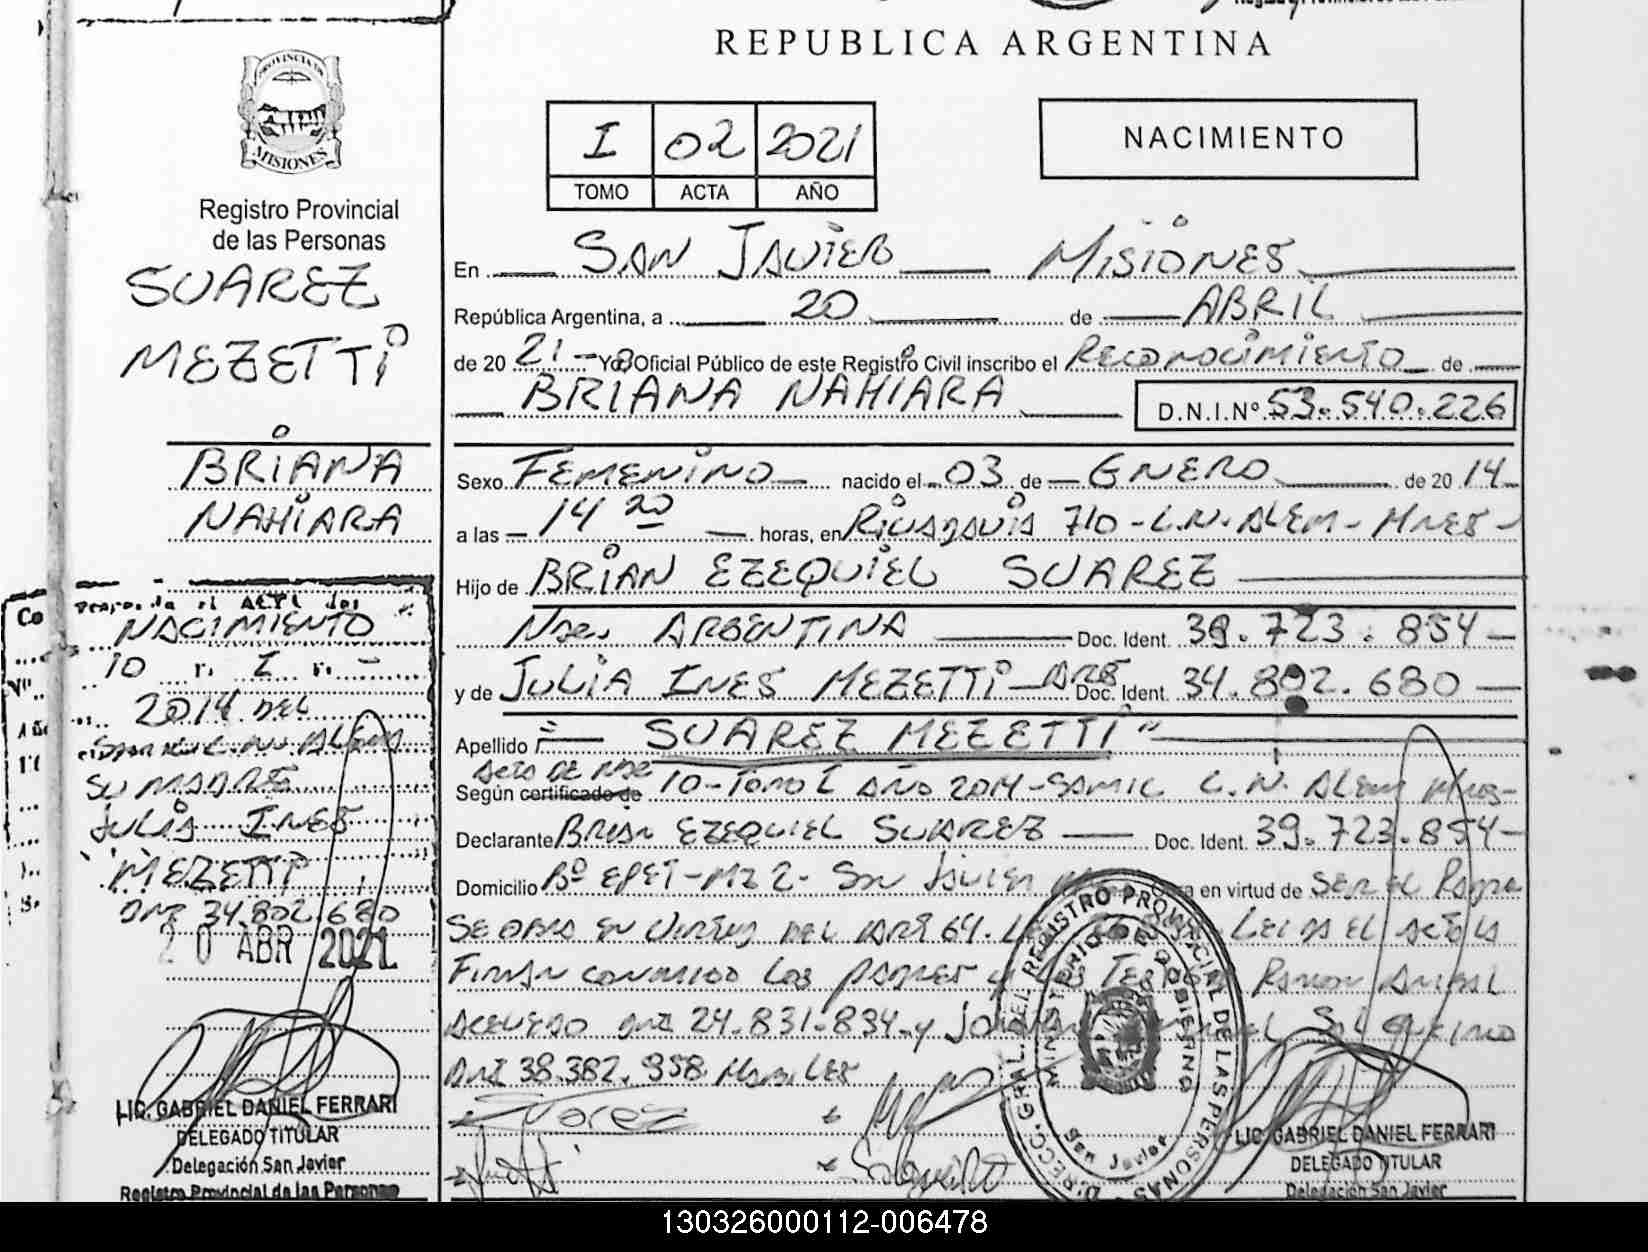 REPUBLICA ARGENTINA
PROVINCIA DE
MISIONES
Registro Provincial
de las Personas
SUAREZ
MEZETTI
BRIANA
NAHIARA
I 02 2021
TOMO ACTA AÑO
NACIMIENTO
En SAN JAVIER MISIONES
República Argentina, a 20 de ABRIL
de 20 21 Yo, Oficial Público de este Registro Civil inscribo el RECONOCIMIENTO de
BRIANA NAHIARA D.N.I.Nº 53.540.226
Sexo FEMENINO nacido el 03 de ENERO de 20 14
a las 14 20 horas, en RIVADAVIA 710 - L.N. ALEM - MNES -
Hijo de BRIAN EZEQUIEL SUAREZ
Nac. ARGENTINA Doc. Ident. 39.723.854
y de JULIA INES MEZETTI ARG Doc. Ident. 34.802.680
Apellido "SUAREZ MEZETTI"
ACTA DE NAC
Según certificado de 10 - TOMO I AÑO 2014 - SAMIC L.N. ALEM MNES -
Declarante BRIAN EZEQUIEL SUAREZ Doc. Ident. 39.723.854
Domicilio Bº EPET - MZ 2 - SAN JAVIER en virtud de SER EL PADRE
SE OBRA EN VIRTUD DEL ART 64. LEIDA EL ACTA LA
FIRMAN CONMIGO LOS PADRES Y TESTIGOS RAMON ANIBAL
ACEVEDO DNI 24.831.834 y
DNI 38.382.958 HABILES
NACIMIENTO
10 I
2014 DEL
L.N. ALEM
SU MADRE
JULIA INES
MEZETTI
DNI 34.802.680
20 ABR 2021
LIC. GABRIEL DANIEL FERRARI
DELEGADO TITULAR
Delegación San Javier
Registro Provincial de las Personas
DIRECC. GRAL. DEL REGISTRO PROVINCIAL DE LAS PERSONAS
MINISTERIO DE GOBIERNO
San Javier
LIC. GABRIEL DANIEL FERRARI
DELEGADO TITULAR
Delegación San Javier
130326000112-006478